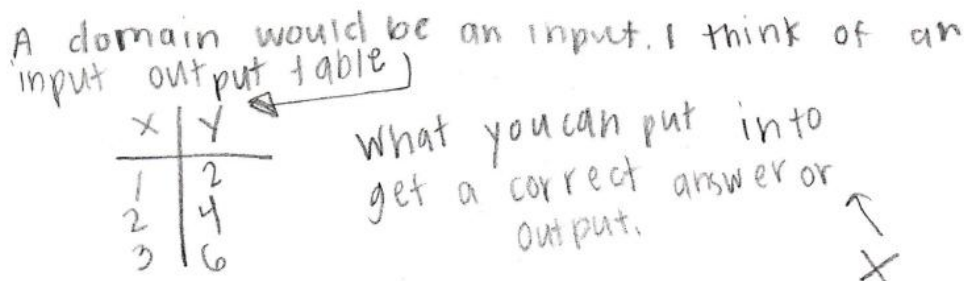 A domain would be an input. I think of an
input output table
x y
1 2
2 4
3 6
What you can put into
get a correct answer or
output.
x